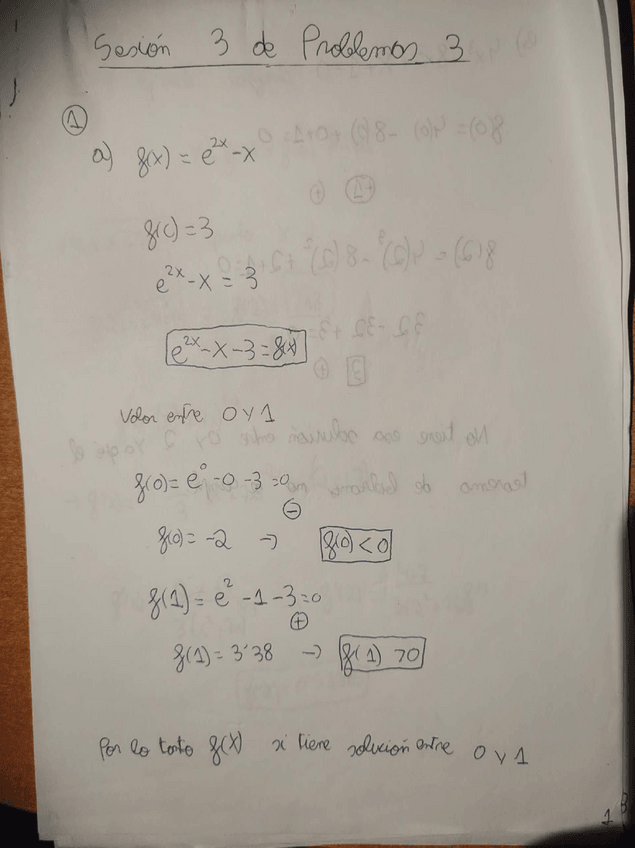 Sesión 3 de Problemas 3
1
a) f(x) = e^2x - x
f(c) = 3
e^2x - x = 3
e^2x - x - 3 = f(x)
Valor entre 0 y 1
f(0) = e^0 - 0 - 3 = 0
⊖
f(0) = -2 → f(0) < 0
f(1) = e^2 - 1 - 3 = 0
⊕
f(1) = 3'38 → f(1) > 0
Por lo tanto f(x) si tiene solución entre 0 y 1
1